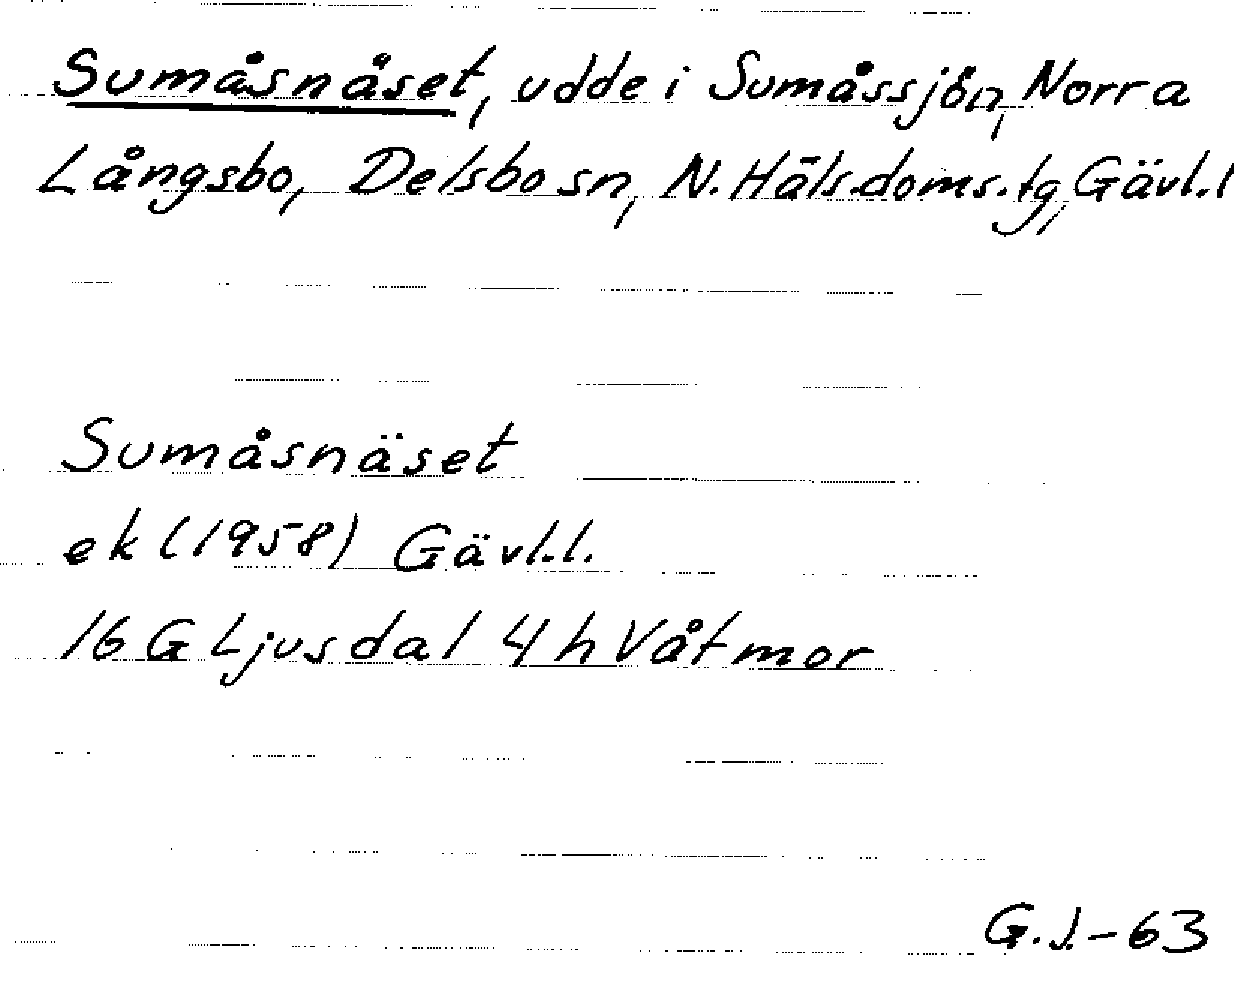 Sumåsnåset, udde i Sumåssjön, Norra
Långsbo, Delsbo sn, N. Häls. doms. tg, Gävl. l
Sumåsnäset
ek (1958) Gävl. l.
16 G Ljusdal 4 h Våtmor
G.J.-63